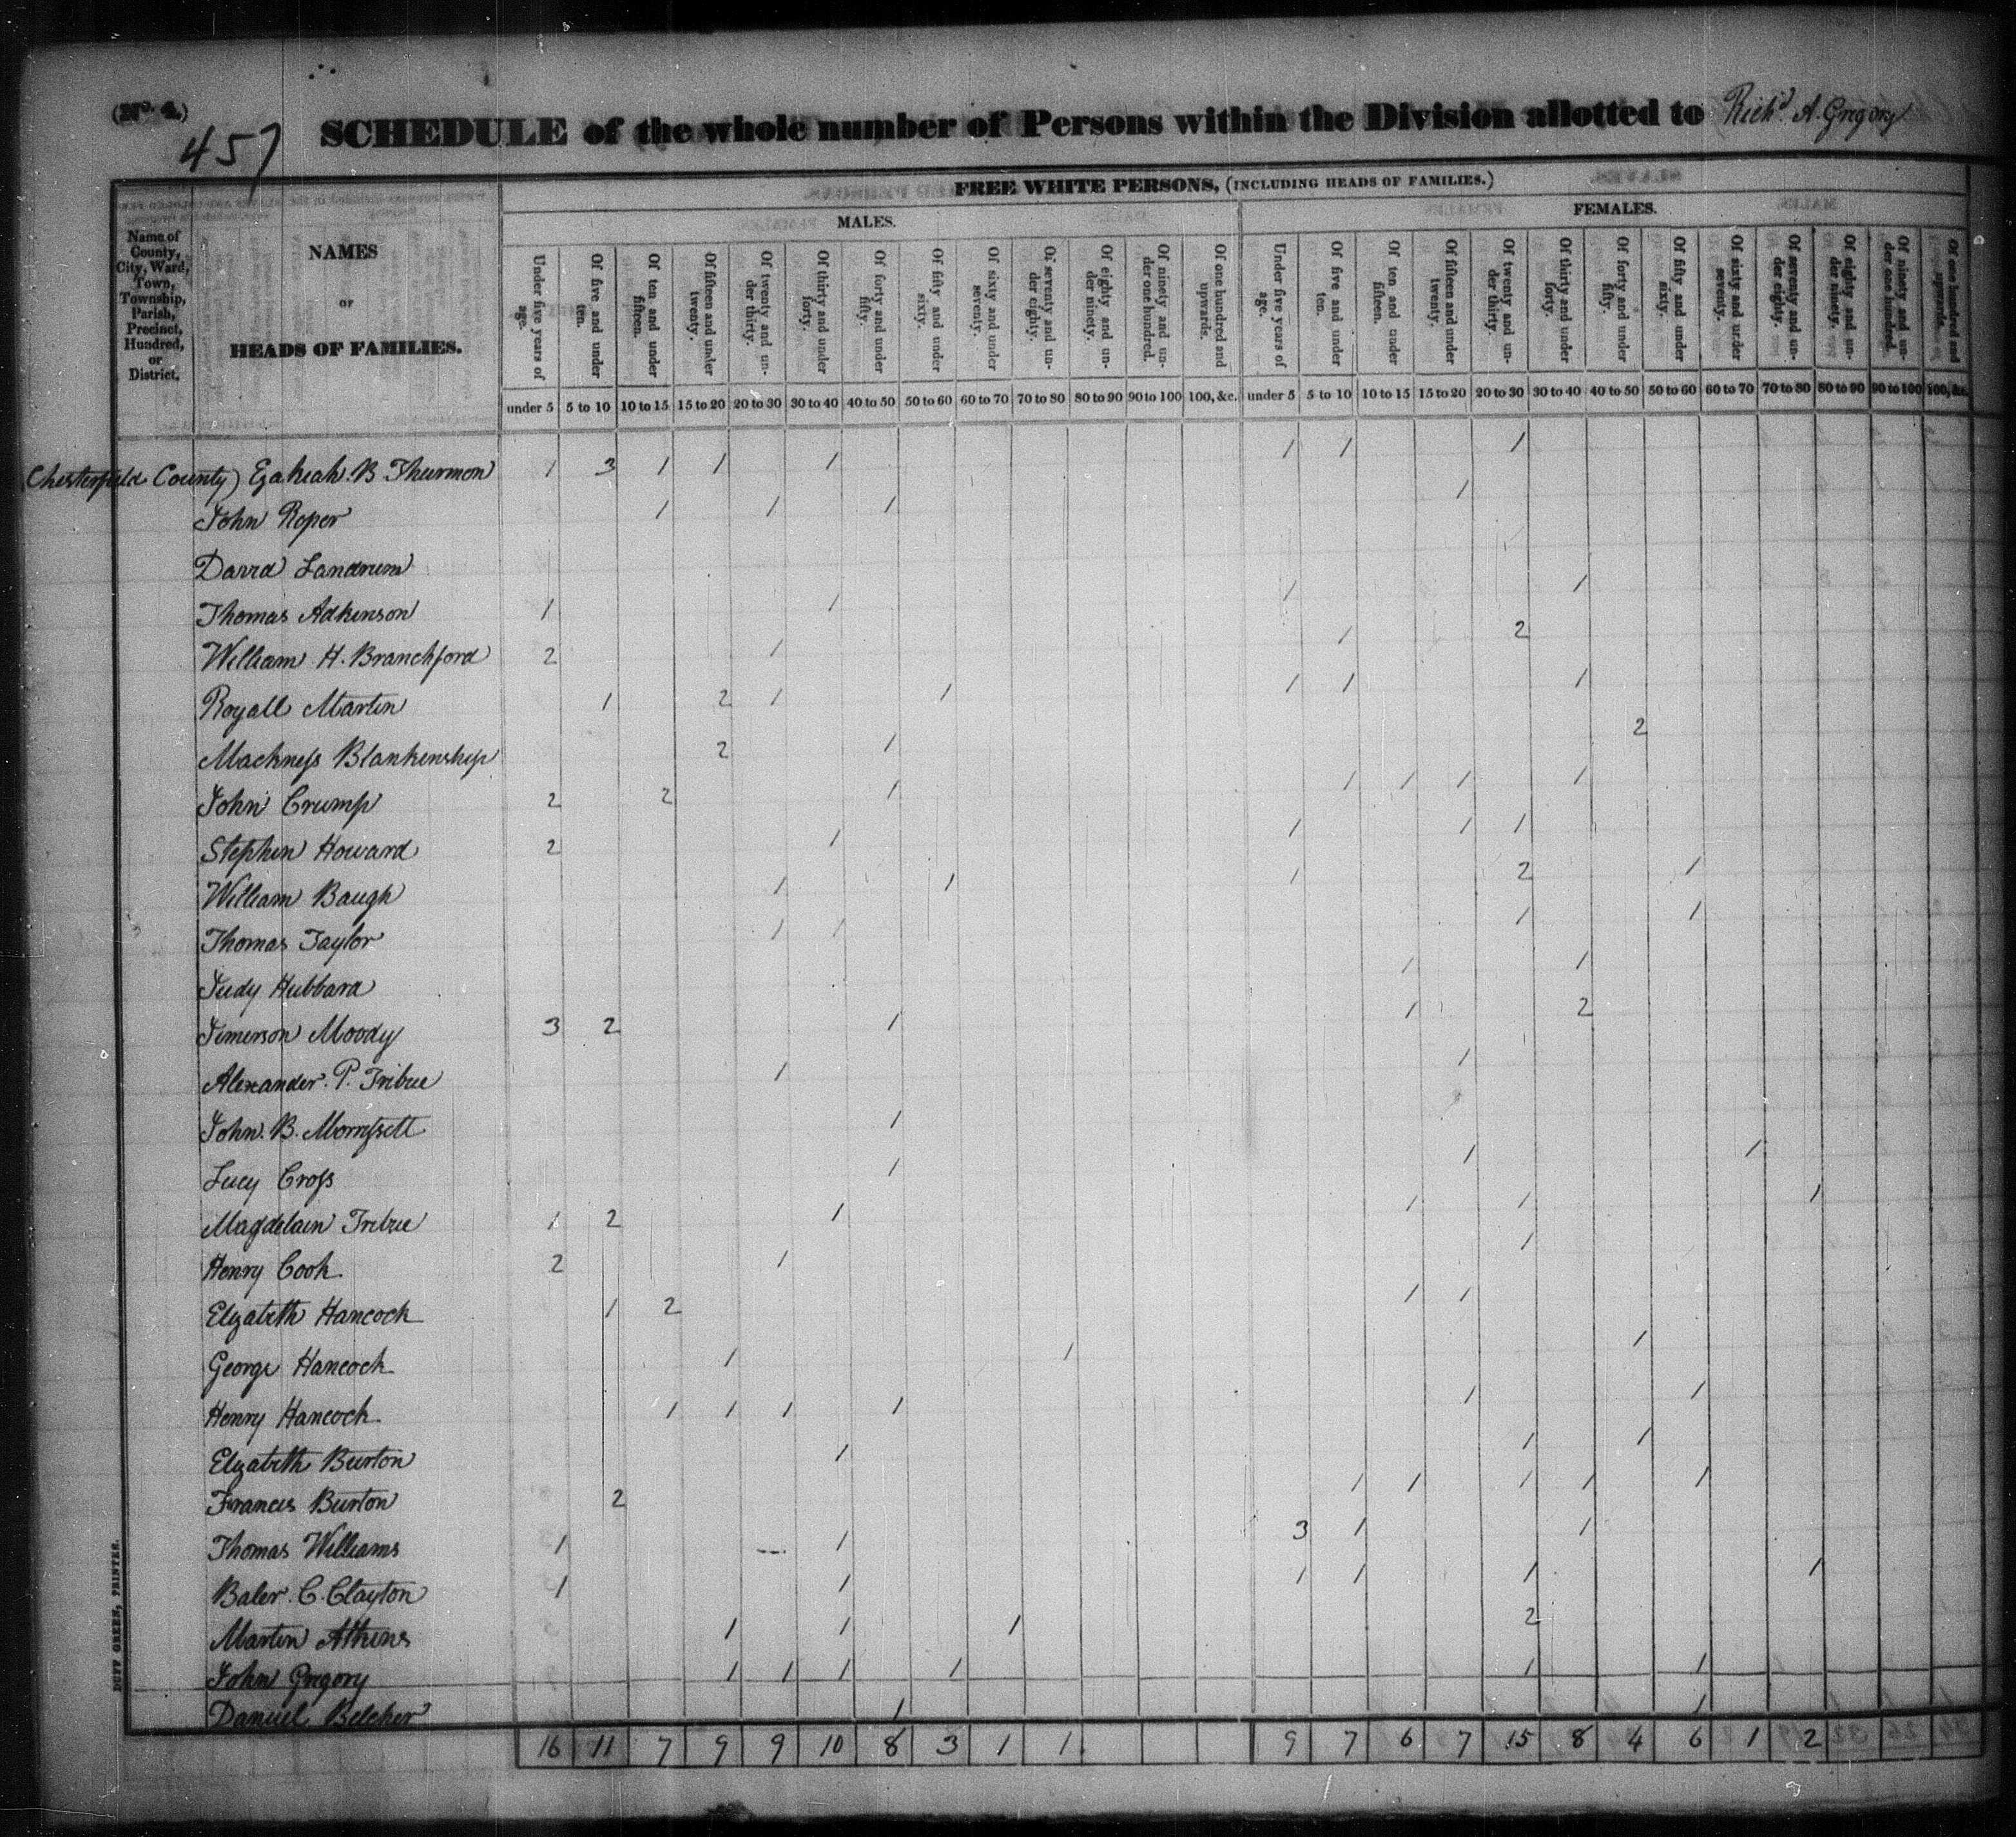 (No. 4.)
457
SCHEDULE of the whole number of Persons within the Division allotted to Richd. A. Gregory
FREE WHITE PERSONS, (INCLUDING HEADS OF FAMILIES.)
MALES. FEMALES.
Name of County, City, Ward, Town, Township, Parish, Precinct, Hundred, or District.
NAMES
OF
HEADS OF FAMILIES.
Under five years of age. Of five and under ten. Of ten and under fifteen. Of fifteen and under twenty. Of twenty and under thirty. Of thirty and under forty. Of forty and under fifty. Of fifty and under sixty. Of sixty and under seventy. Of seventy and under eighty. Of eighty and under ninety. Of ninety and under one hundred. Of one hundred and upwards. Under five years of age. Of five and under ten. Of ten and under fifteen. Of fifteen and under twenty. Of twenty and under thirty. Of thirty and under forty. Of forty and under fifty. Of fifty and under sixty. Of sixty and under seventy. Of seventy and under eighty. Of eighty and under ninety. Of ninety and under one hundred. Of one hundred and upwards.
under 5 5 to 10 10 to 15 15 to 20 20 to 30 30 to 40 40 to 50 50 to 60 60 to 70 70 to 80 80 to 90 90 to 100 100, &c. under 5 5 to 10 10 to 15 15 to 20 20 to 30 30 to 40 40 to 50 50 to 60 60 to 70 70 to 80 80 to 90 90 to 100 100, &c.
Chesterfield County) Ezakeah. B Thurmon 1 3 1 1 1 1 1 1
John Roper 1 1 1 1
David Landrum
Thomas Adkinson 1 1 1 1
William H. Branchford 2 1 1 2
Royall Martin 1 2 1 1 1 1 1
Mackness Blankenship 2 1 2
John Crump 2 2 1 1 1 1 1
Stephen Howard 2 1 1 1 1
William Baugh 1 1 1 2 1
Thomas Taylor 1 1 1 1
Judy Hubbard 1 1
Jimerson Moody 3 2 1 1 2
Alexander. P. Tribue 1 1
John. B. Morrissett 1
Lucy Cross 1 1 1
Magdelain Tribue 1 2 1 1 1 1
Henry Cook 2 1 1
Elizabeth Hancock 1 2 1 1
George Hancock 1 1 1
Henry Hancock 1 1 1 1 1 1
Elizabeth Burton 1 1 1
Francis Burton 2 1 1 1 1 1
Thomas Williams 1 1 3 1 1
Baler. C. Clayton 1 1 1 1 1 1
Martin Atkins 1 1 1 2
John Gregory 1 1 1 1 1 1
Daniel Belcher 1 1
16 11 7 9 9 10 8 3 1 1 9 7 6 7 15 8 4 6 1 2
DUFF GREEN, PRINTER.